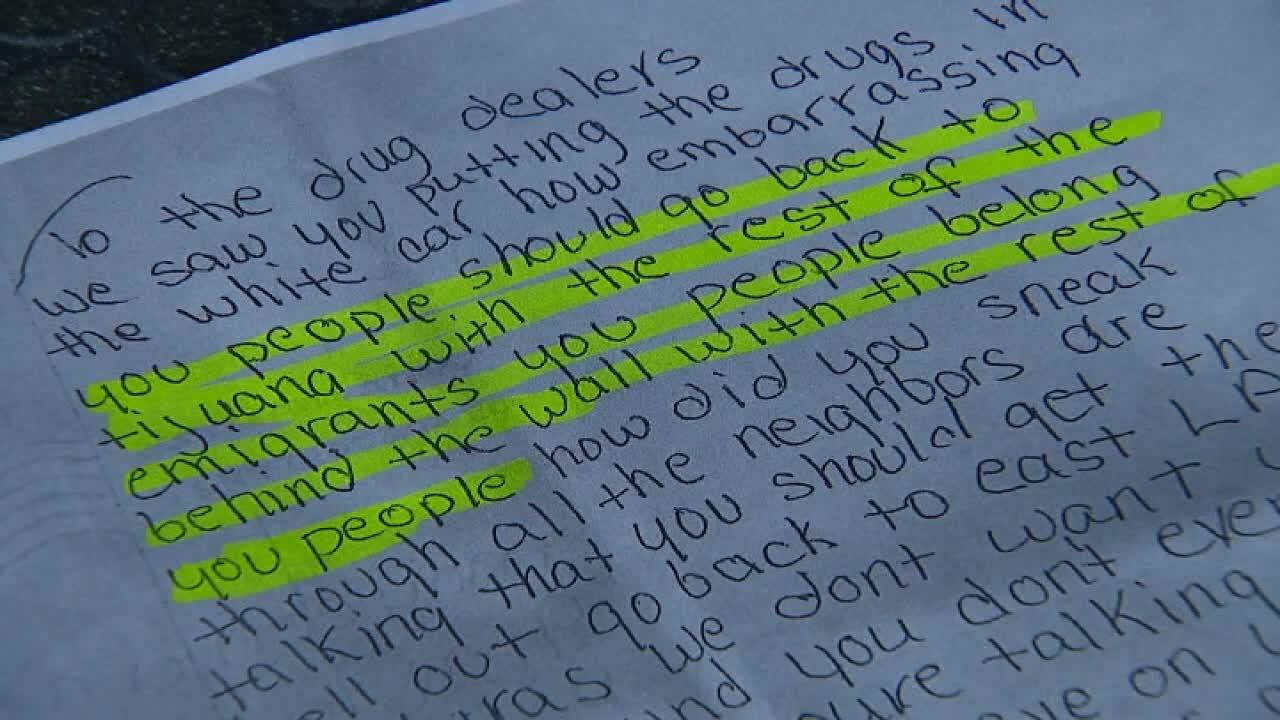 to the drug dealers
we saw you putting the drugs in
the white car how embarrassing
you people should go back to
tijuana with the rest of the
emigrants you people belong
behind the wall with the rest of
you people how did you sneak
through all the neighbors are
talking that you should get the
out go back to east LA
we dont want
you dont even
talking
on